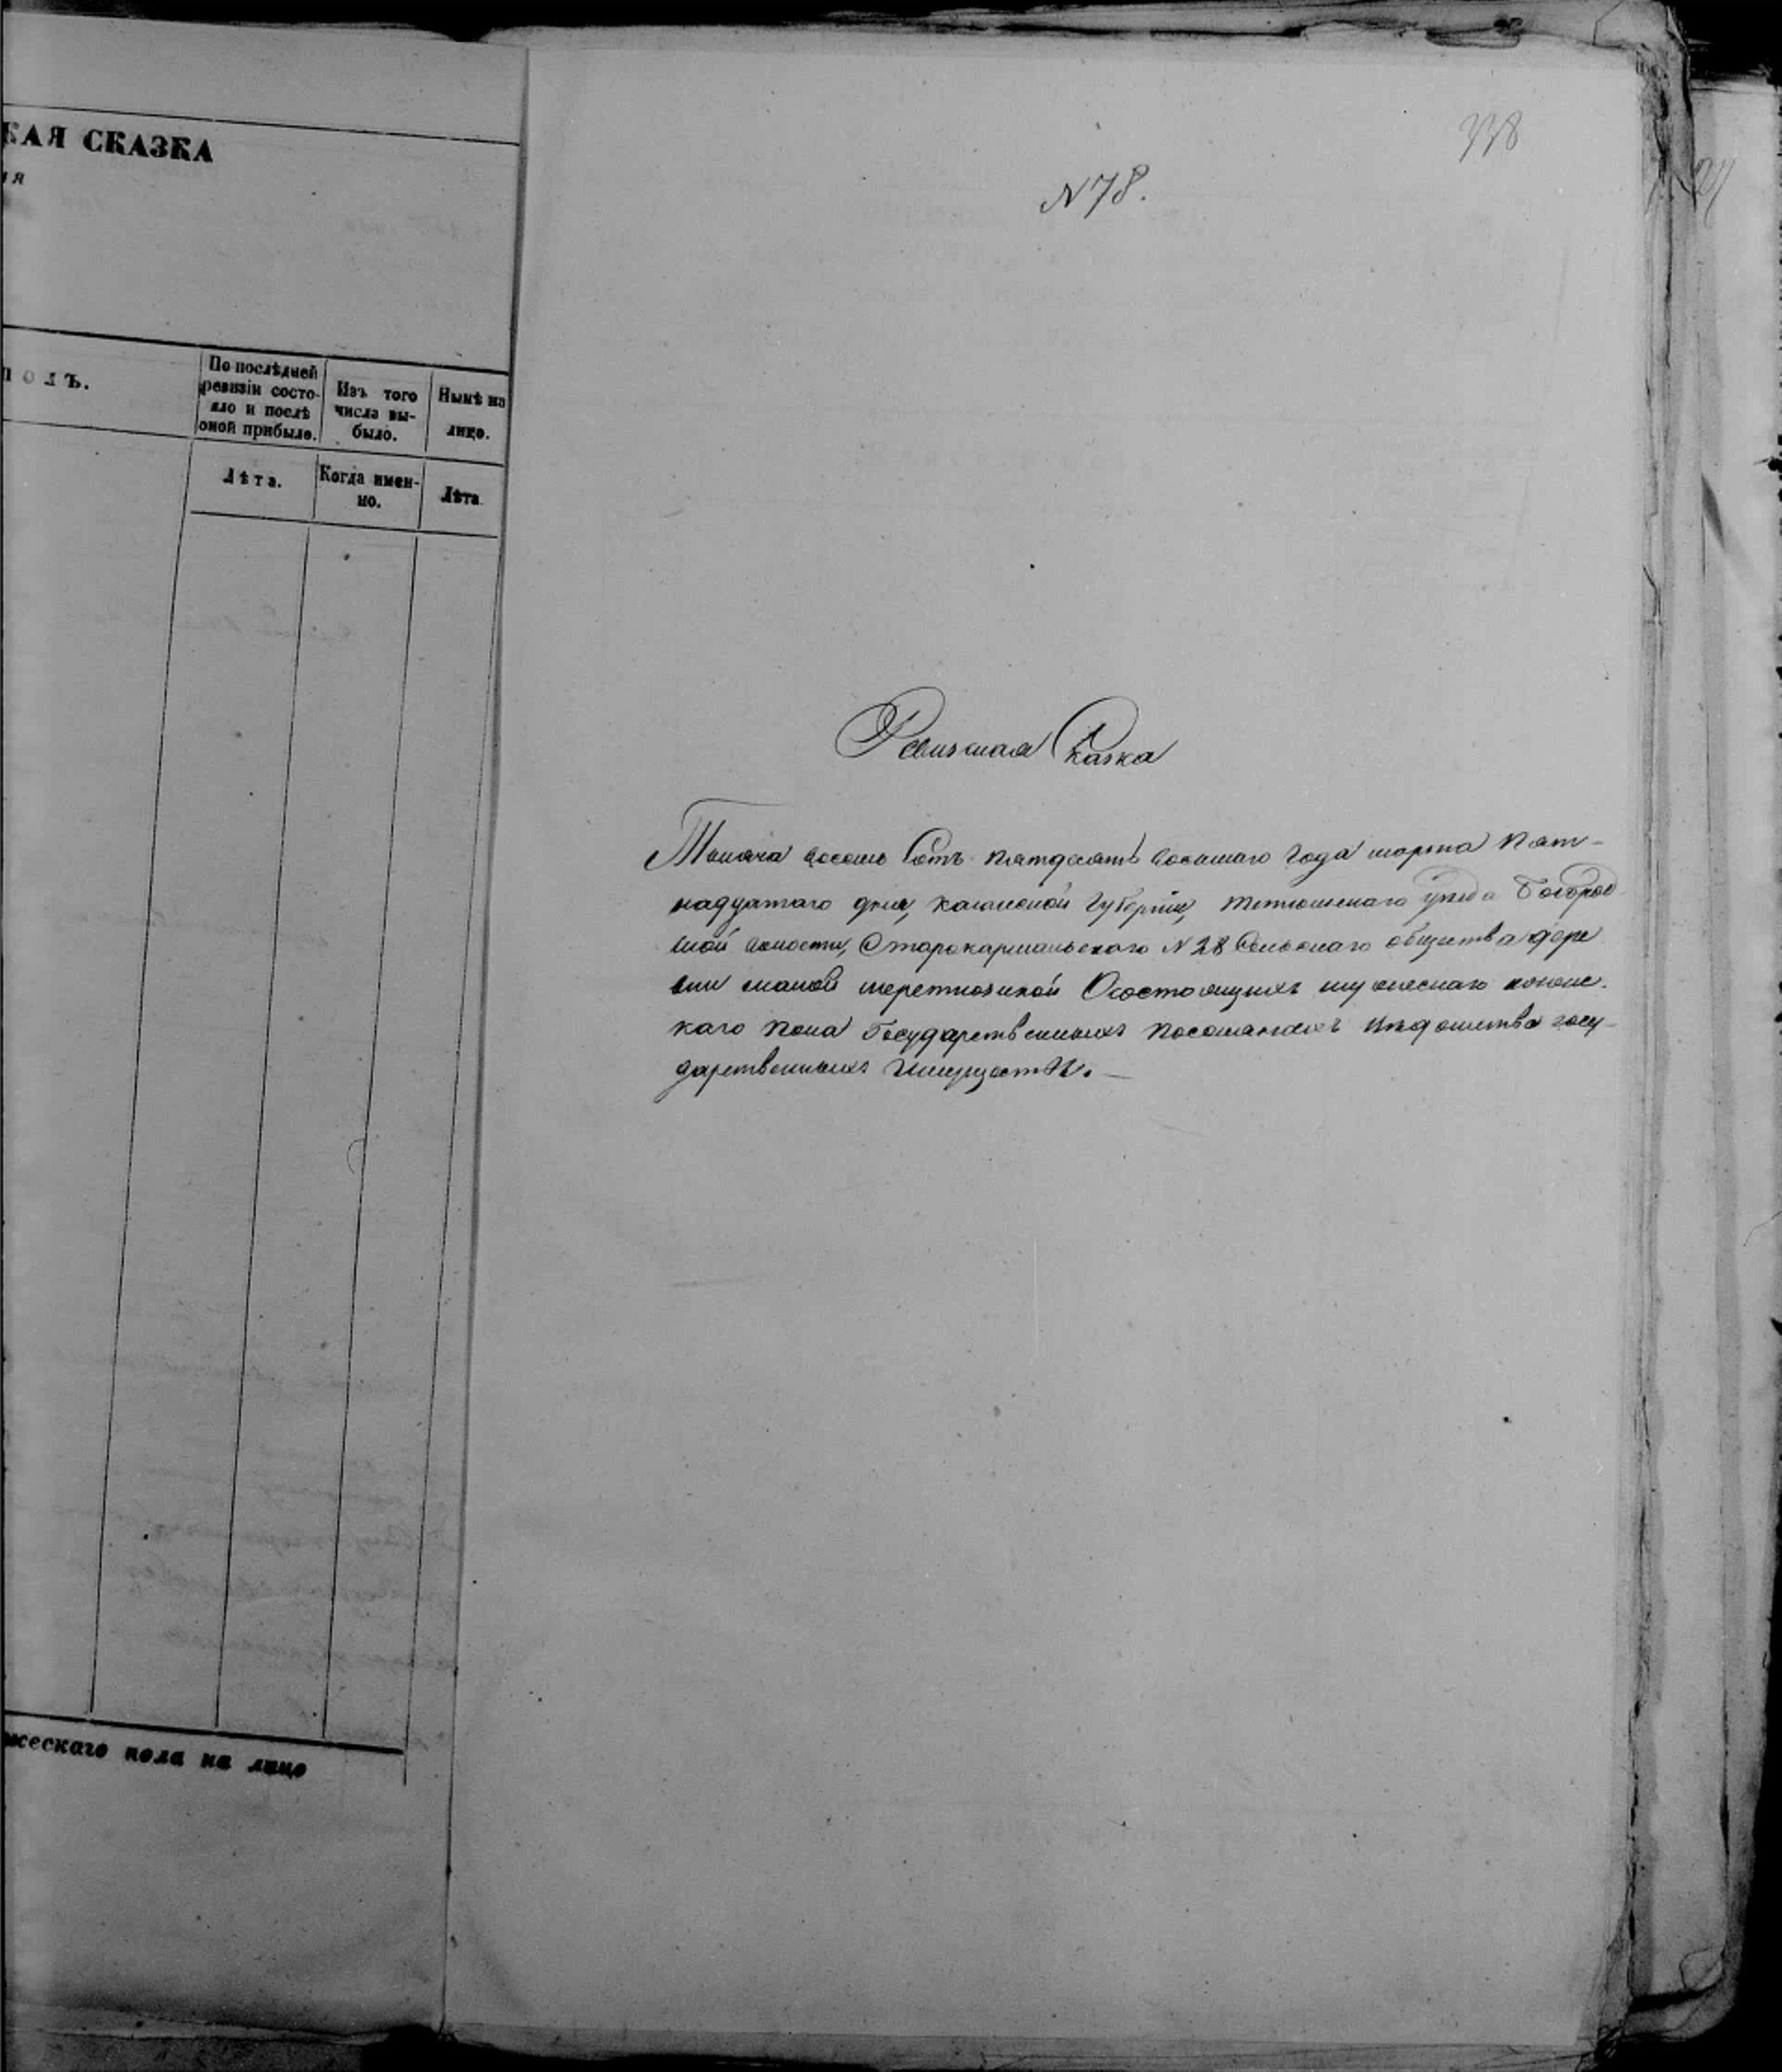 КАЯ СКАЗКА
ія
полъ.
По послѣдней ревизіи состояло и послѣ оной прибыло.
Изъ того числа выбыло.
Нынѣ на лицо.
Лѣта.
Когда именно.
Лѣта
жескаго пола на лицо
338
N 78.
Ревизская Сказка
Тысяча восемь Сотъ пятдесятъ восьмаго года марта пят-
надцатаго дня, казанской Губерніи, тетюшскаго уѣзда Богород
ской волости, Старокарамальскаго N 28 Сельскаго общества дере
вни малой Осостоящихъ мужескаго женс.
каго пола Государственныхъ поселянахъ вѣдомства госу-
дарственныхъ Имуществъ.—